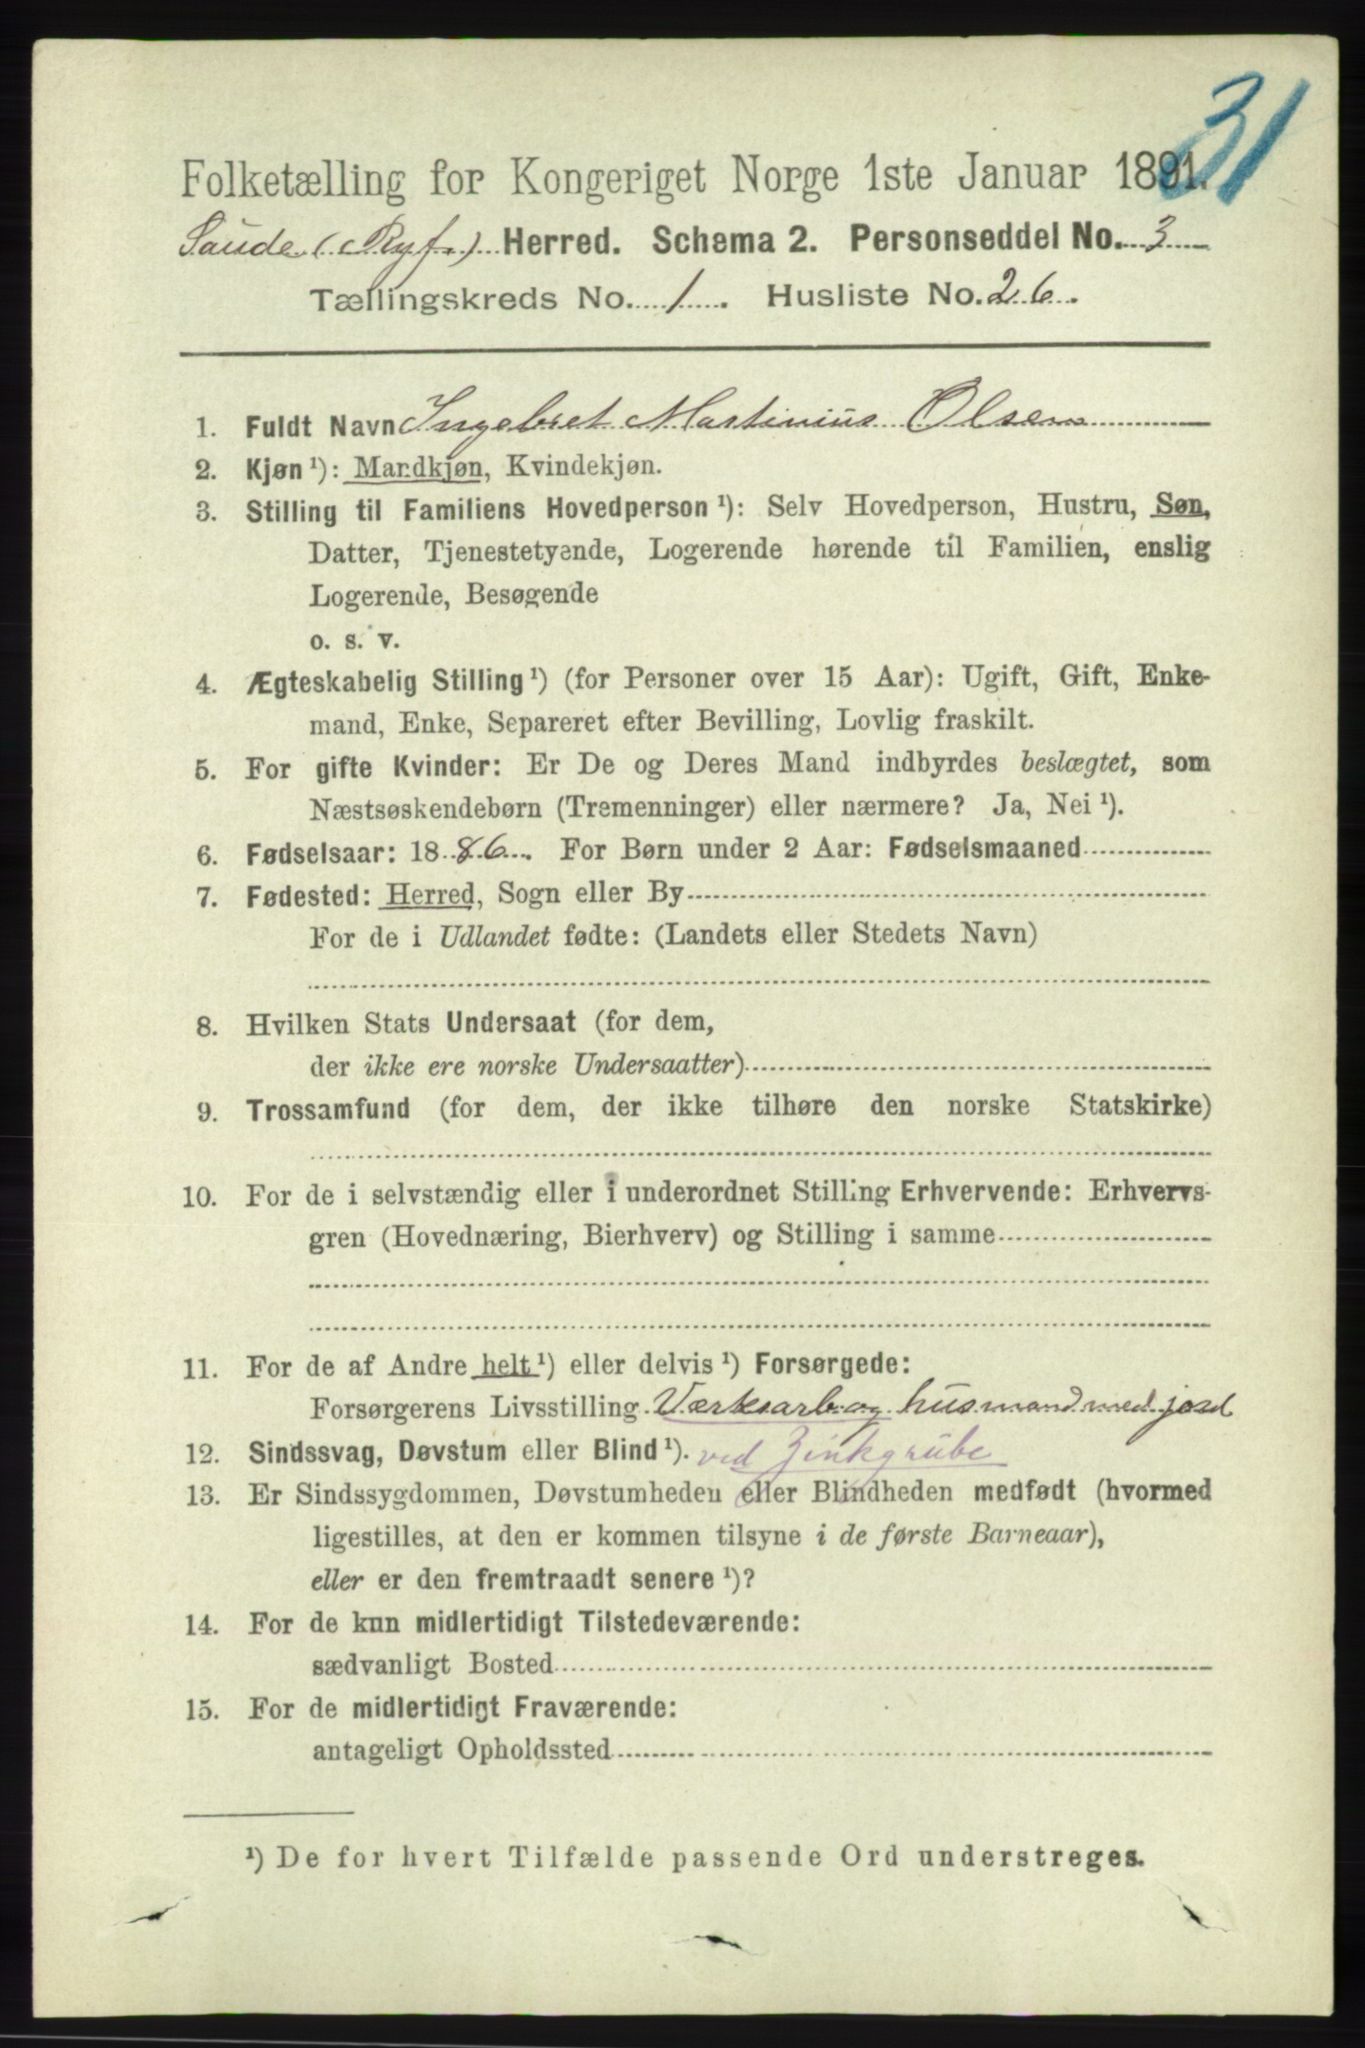 31
Folketælling for Kongeriget Norge 1ste Januar 1891.
Saude (Ryf.) Herred. Schema 2. Personseddel No. 3
Tællingskreds No. 1. Husliste No. 26.
1. Fuldt Navn Ingebret Martinius Olsen
2. Kjøn ¹): Mandkjøn, Kvindekjøn.
3. Stilling til Familiens Hovedperson ¹): Selv Hovedperson, Hustru, Søn,
Datter, Tjenestetyende, Logerende hørende til Familien, enslig
Logerende, Besøgende
o. s. v.
4. Ægteskabelig Stilling ¹) (for Personer over 15 Aar): Ugift, Gift, Enke-
mand, Enke, Separeret efter Bevilling, Lovlig fraskilt.
5. For gifte Kvinder: Er De og Deres Mand indbyrdes beslægtet, som
Næstsøskendebørn (Tremenninger) eller nærmere? Ja, Nei ¹).
6. Fødselsaar: 1886. For Børn under 2 Aar: Fødselsmaaned
7. Fødested: Herred, Sogn eller By
For de i Udlandet fødte: (Landets eller Stedets Navn)
8. Hvilken Stats Undersaat (for dem,
der ikke ere norske Undersaatter)
9. Trossamfund (for dem, der ikke tilhøre den norske Statskirke)
10. For de i selvstændig eller i underordnet Stilling Erhvervende: Erhvervs-
gren (Hovednæring, Bierhverv) og Stilling i samme
11. For de af Andre helt ¹) eller delvis ¹) Forsørgede:
Forsørgerens Livsstilling Værksarb. og husmand med jord
12. Sindssvag, Døvstum eller Blind ¹). ved Zinkgrube
13. Er Sindssygdommen, Døvstumheden eller Blindheden medfødt (hvormed
ligestilles, at den er kommen tilsyne i de første Barneaar),
eller er den fremtraadt senere ¹)?
14. For de kun midlertidigt Tilstedeværende:
sædvanligt Bosted
15. For de midlertidigt Fraværende:
antageligt Opholdssted
¹) De for hvert Tilfælde passende Ord understreges.